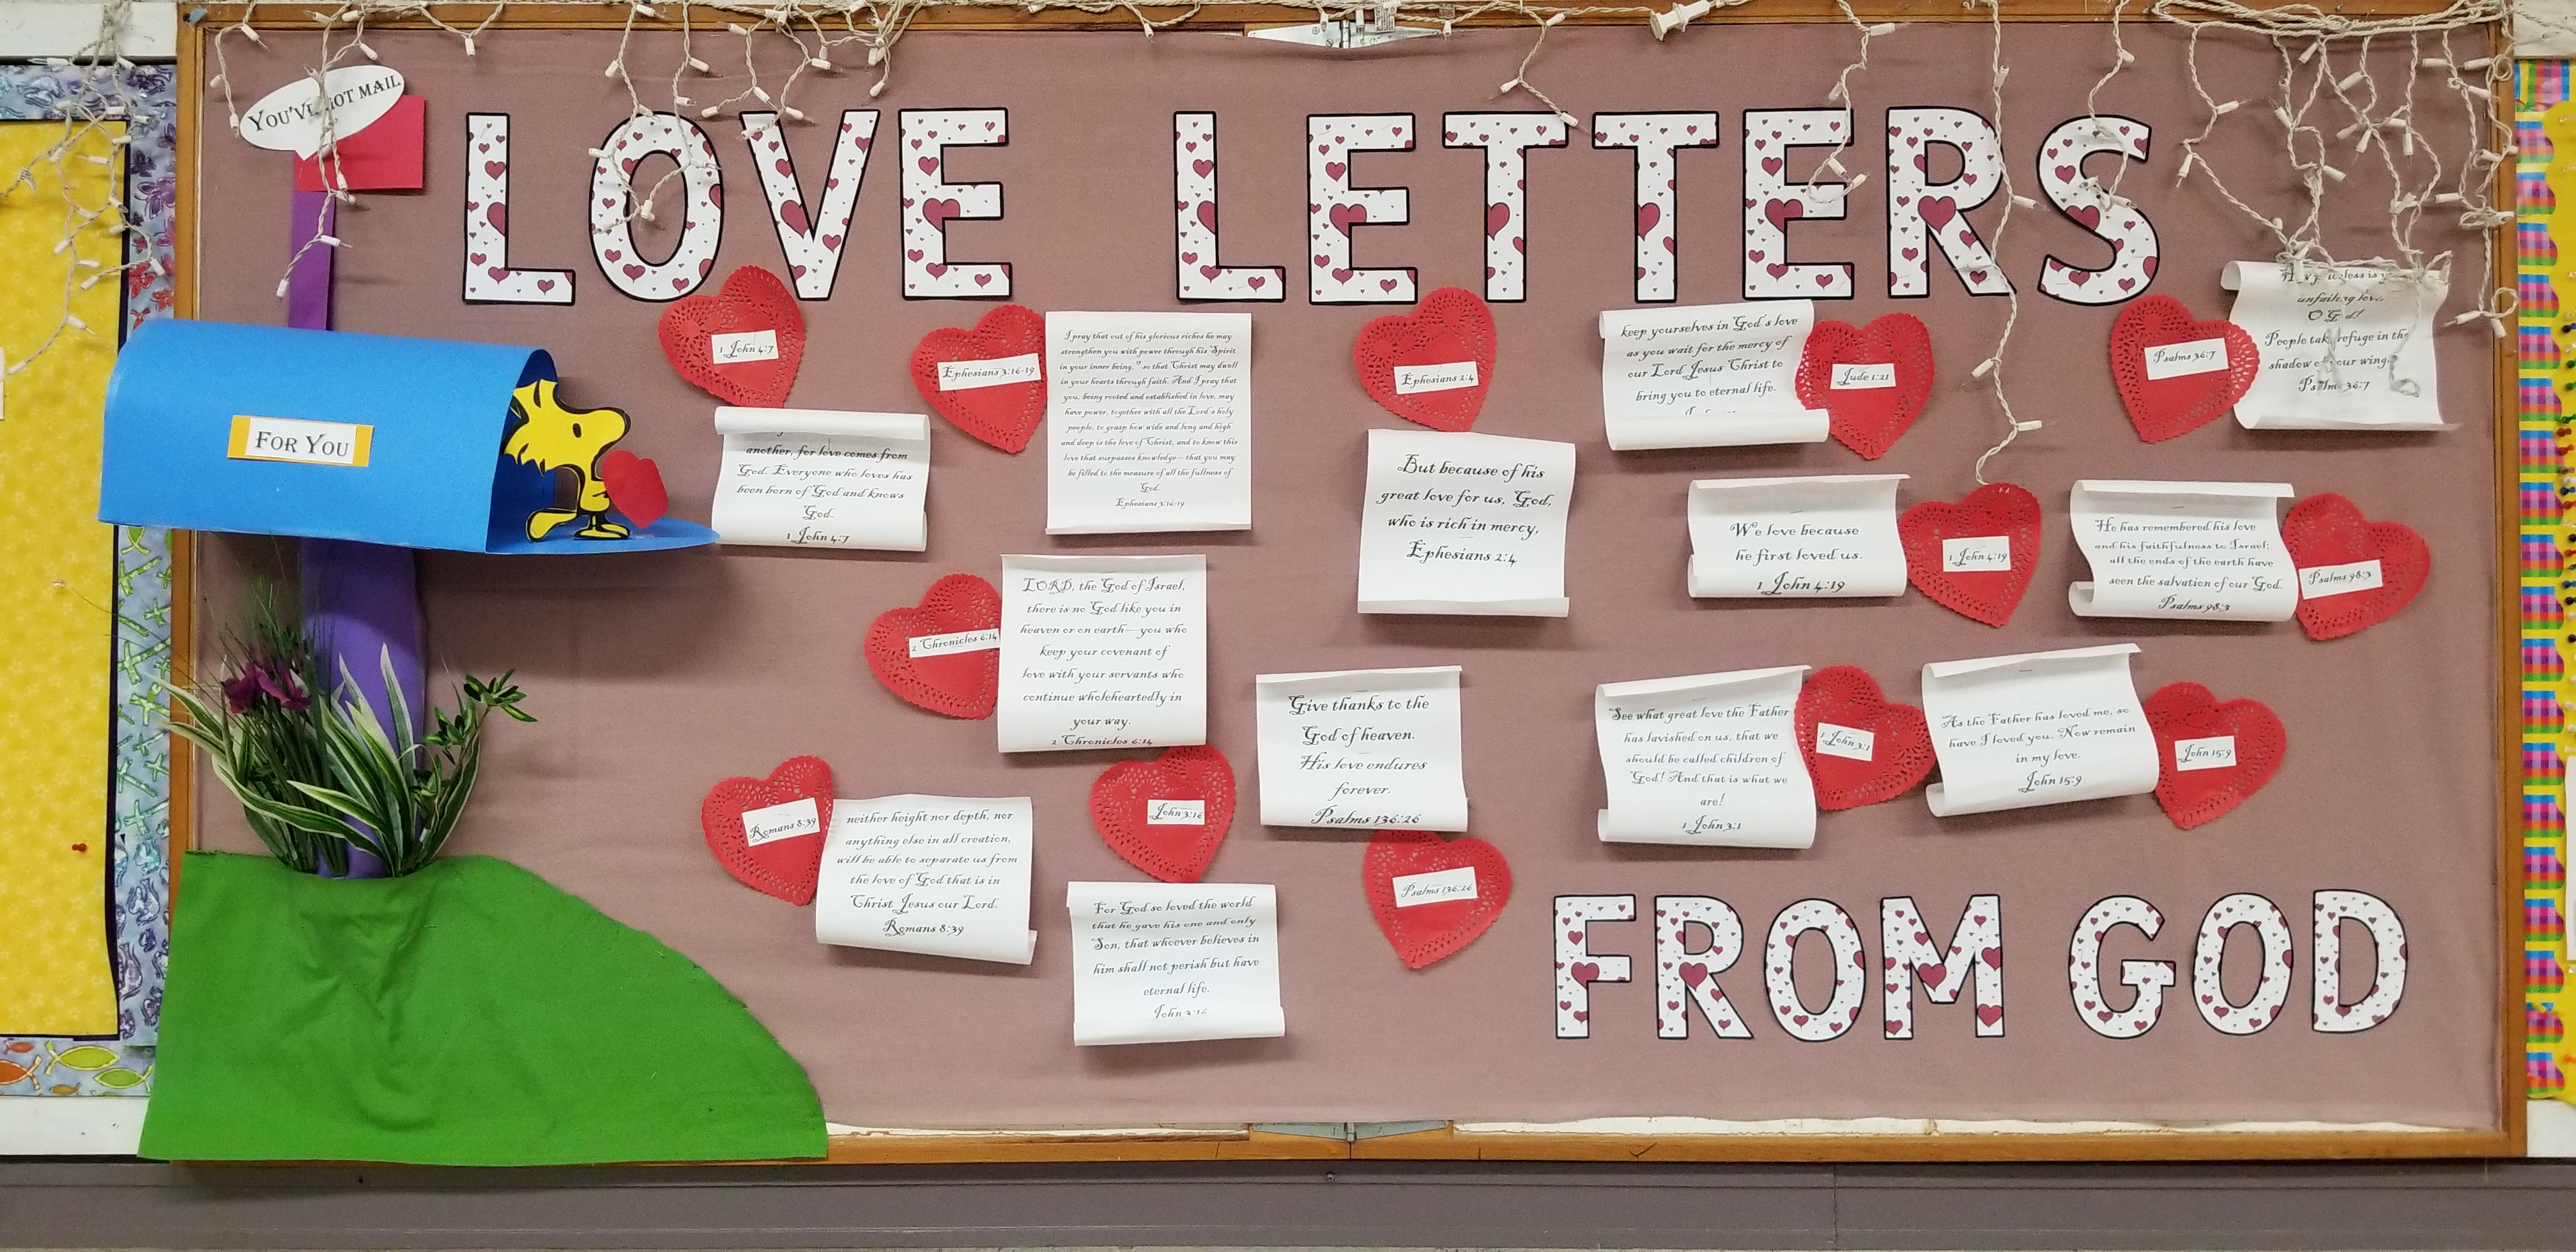 YOU'VE GOT MAIL
LOVE LETTERS
FOR YOU
1 John 4:7
another, for love comes from
God. Everyone who loves has
been born of God and knows
God.
1 John 4:7
Ephesians 3:16-19
I pray that out of his glorious riches he may
strengthen you with power through his Spirit
in your inner being, so that Christ may dwell
in your hearts through faith. And I pray that
you, being rooted and established in love, may
have power, together with all the Lord's holy
people, to grasp how wide and long and high
and deep is the love of Christ, and to know this
love that surpasses knowledge—that you may
be filled to the measure of all the fullness of
God.
Ephesians 3:16-19
Ephesians 2:4
But because of his
great love for us, God,
who is rich in mercy,
Ephesians 2:4
keep yourselves in God's love
as you wait for the mercy of
our Lord Jesus Christ to
bring you to eternal life.
Jude 1:21
Psalms 36:7
is
unfailing love,
O God!
People take refuge in the
shadow of your wings
Psalms 36:7
We love because
he first loved us.
1 John 4:19
1 John 4:19
He has remembered his love
and his faithfulness to Israel;
all the ends of the earth have
seen the salvation of our God.
Psalms 98:3
Psalms 98:3
2 Chronicles 6:14
LORD, the God of Israel,
there is no God like you in
heaven or on earth—you who
keep your covenant of
love with your servants who
continue wholeheartedly in
your way.
2 Chronicles 6:14
Give thanks to the
God of heaven.
His love endures
forever.
Psalms 136:26
Psalms 136:26
See what great love the Father
has lavished on us, that we
should be called children of
God! And that is what we
are!
1 John 3:1
1 John 3:1
As the Father has loved me, so
have I loved you. Now remain
in my love.
John 15:9
John 15:9
Romans 8:39
neither height nor depth, nor
anything else in all creation,
will be able to separate us from
the love of God that is in
Christ Jesus our Lord.
Romans 8:39
John 3:16
For God so loved the world
that he gave his one and only
Son, that whoever believes in
him shall not perish but have
eternal life.
John 3:16
FROM GOD